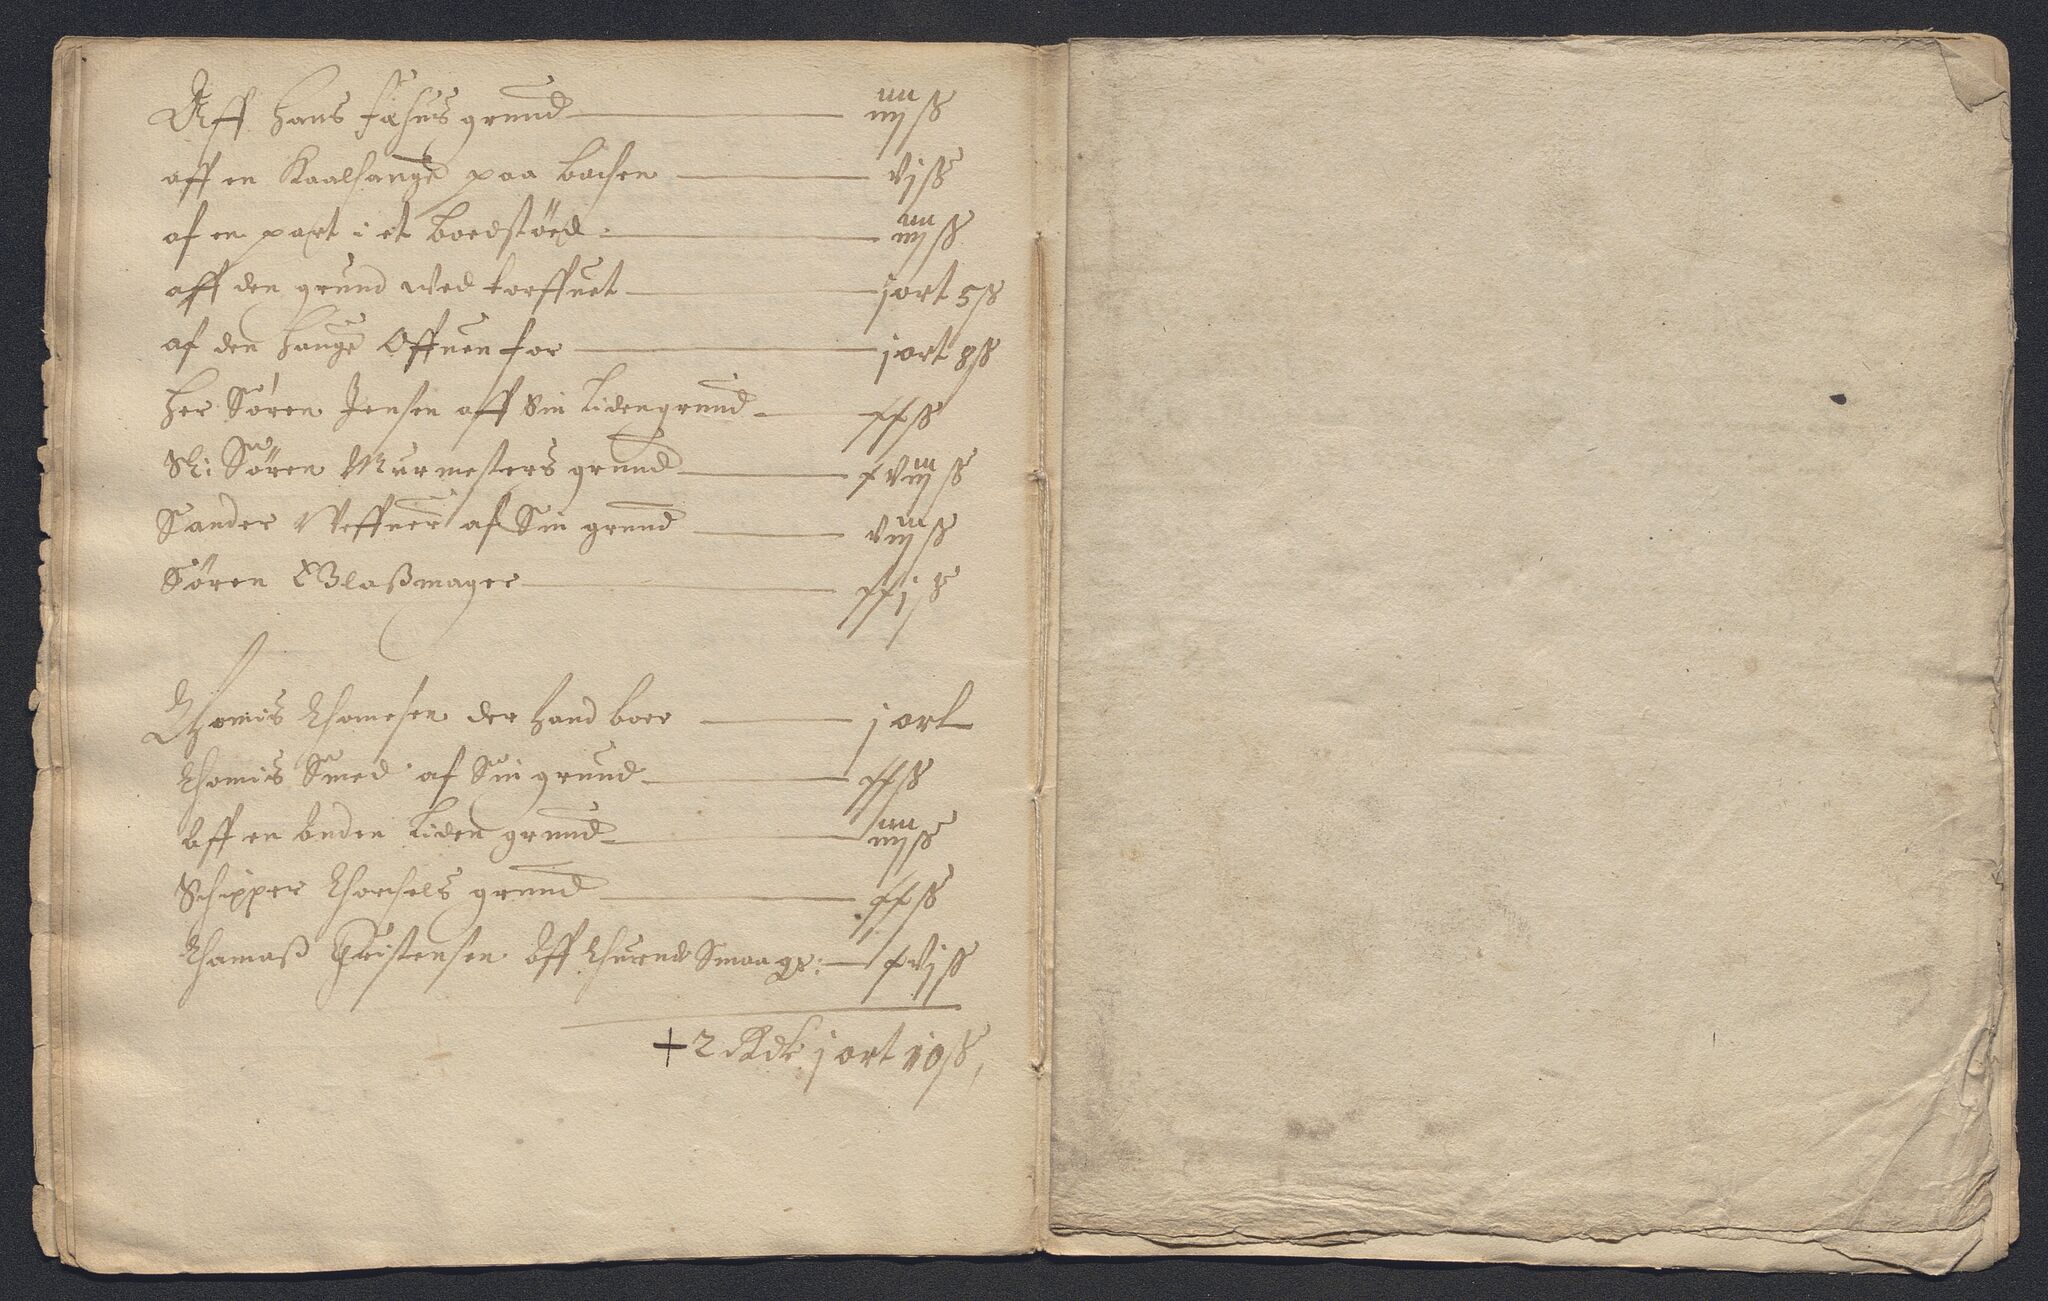 Aff Hans Fæhus grund — iiijß
aff en Kaalhauge paa backen — vjß
af en part i et boedstöed — iiijß
aff den grund wed torffuet — j ort 5ß
af den hauge offuen for — j ort 8ß
Her Sören Jensen aff Sin liden grund — xxß
Sl: Sören Murmesters grund — xviijß
Sander Weffuer af Sin grund — viijß
Sören Glaßmager — xxjß
Thomis Thomesen der hand boer — j ort
Thomis Smed af Sin grund — xxß
Aff en anden liden grund — iiijß
Schipper Thorchels grund — xxß
Thamaß Christensen Aff Smaa gr: — xvjß
+ 2 Rdr j ort 10ß